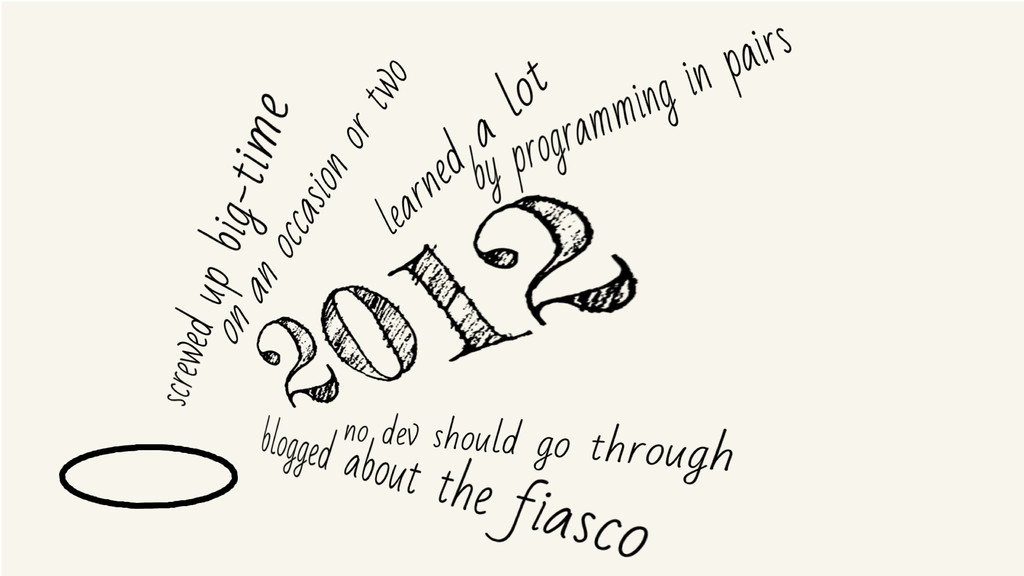 screwed up big-time
on an occasion or two
learned a lot
by programming in pairs
2012
no dev should go through
blogged about the fiasco